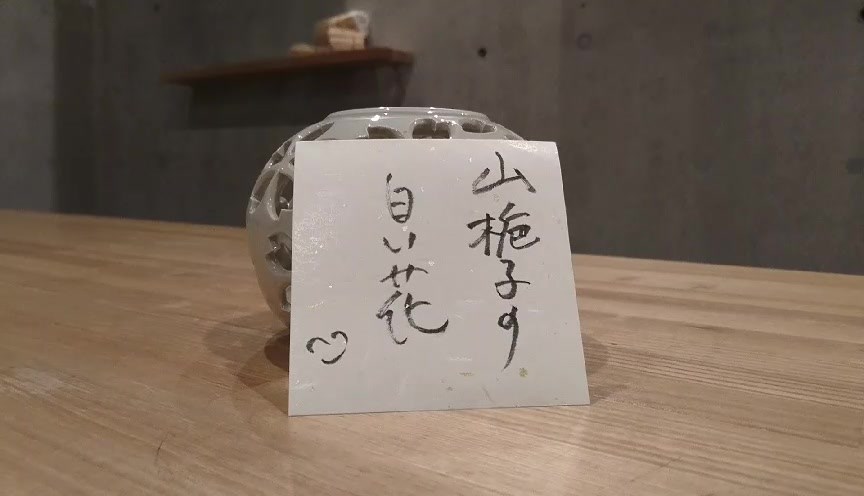 山梔子の
白い花